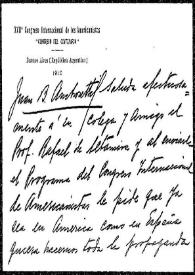 XVIIº Congreso Internacional de los Americanistas
"CONGRESO DEL CENTENARIO"
Buenos Aires (República Argentina)
1910
Juan B. Ambrosetti Saluda afectuosa-
mente a su colega y amigo el
Prof. Rafael de Altamira y al enviarle
el Programa del Congreso Internacional
de Americanistas le pide que ya
sea en America como en España
quiera hacernos toda la propaganda